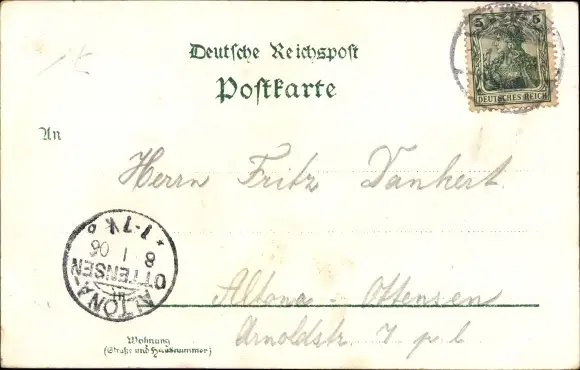 Deutsche Reichspost
Postkarte
5 5
DEUTSCHES REICH
An
Herrn Fritz Dankert
ALTONA-
OTTENSEN
8 1 06
* 1-7 V
Altona - Ottensen
Arnoldstr. 7 p. l
Wohnung
(Straße und Hausnummer)